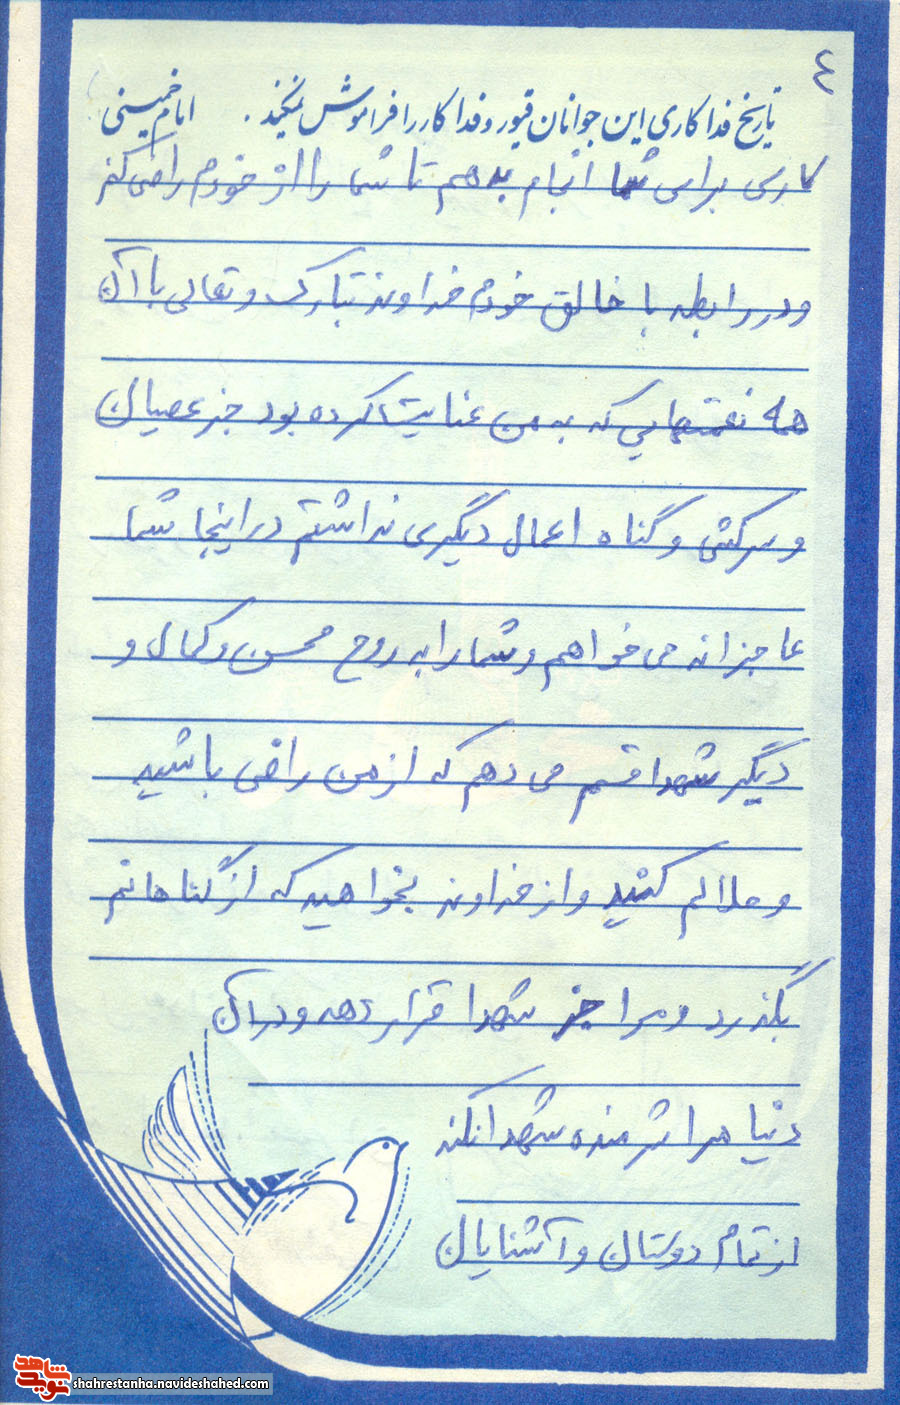 ٤
تاریخ فداکاری این جوانان غیور و فداکار را فراموش نمیکند. امام خمینی
کاری برای شما انجام بدهم تا شما را از خودم راضی کنم
و در رابطه با خالق خودم خداوند تبارک و تعالی با آن
همه نعمتهایی که به من عنایت کرده بود جز عصیان
و سرکشی و گناه اعمال دیگری نداشتم در اینجا شما
عاجزانه می خواهم و شما را به روح محسن و کمال و
دیگر شهدا قسم می دهم که از من راضی باشید
و حلالم کنید و از خداوند بخواهید که از گناهانم
بگذرد و مرا جز شهدا قرار دهد و در آن
دنیا مرا شرمنده شهدا نکند
از تمام دوستان و آشنایان
نوید شاهد
shahrestanha.navideshahed.com